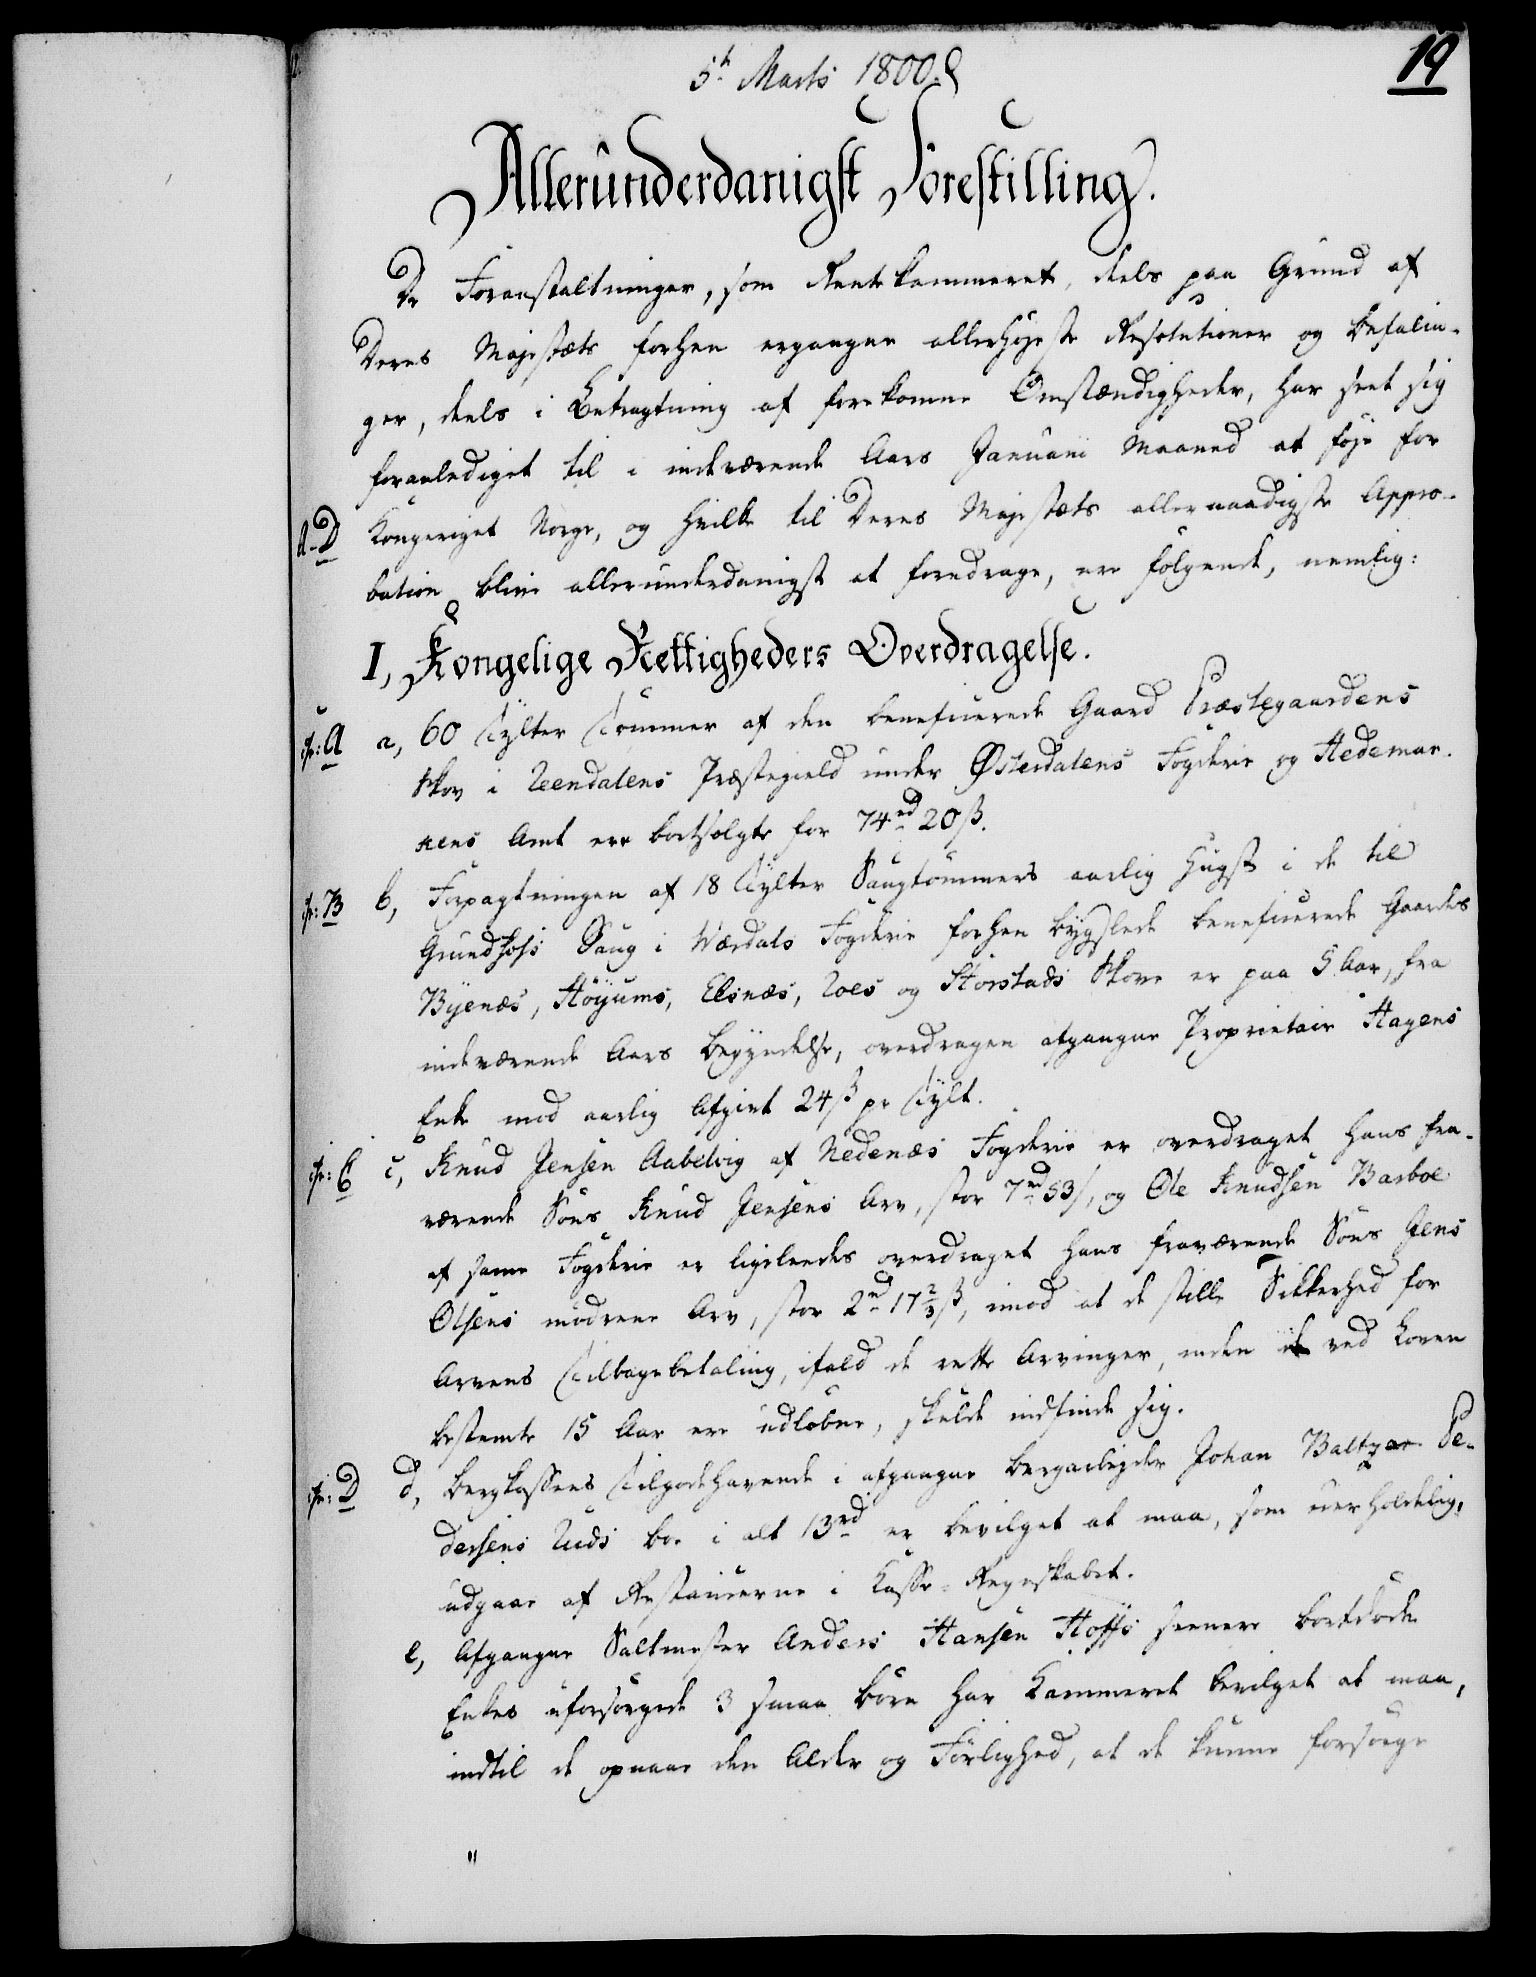 19
5te Marts 1800.
Allerunderdanigst Forestilling.
De Foranstaltninger, som Rentekammeret, deels paa Grund af
Deres Majestæts forhen ergangne allerhøjeste Resolutioner og Befalin-
ger, deels i Betragtning af forekomne Omstændigheder, har seet sig
foranlediget til i indeværende Aars Januarii Maaned at føje for
A-D Kongeriget Norge, og hvilke til Deres Majestæts allernaadigste Appro-
bation blive allerunderdanigst at foredrage, ere følgende, nemlig:
I, Kongelige Rettigheders Overdragelse.
A a, 60 Tylter Tømmer af den beneficerede Gaard Præstegaardens
Skov i Reendalens Præstegield under Østerdalens Fogderie og Hedemar-
kens Amt ere bortsolgte for 74 rd 20 ß.
B b, Forpagtningen af 18 Tylter Saugtømmers aarlig Hugst i de til
Grundfoss Saug i Værdals Fogderie forhen bygslede beneficerede Gaardes
Byenæs, Høyums, Elsnæs, Roes og Storstads Skove er paa 5 Aar, fra
indeværende Aars Begyndelse, overdragen afgangne Proprietair Hagens
Enke mod aarlig Afgivt 24 ß pr Tylt.
C c, Knud Jensen Aabelvig af Nedenæs Fogderie er overdraget hans fra-
værende Søns Knud Jensens Arv, stor 7 rd 53 ß, og Ole Knudsen Barboe
af samme Fogderie er ligeleedes overdraget hans fraværende Søns Jens
Olsens mødrene Arv, stor 2 rd 17 2/3 ß, imod at de stille Sikkerhed for
Arvens Tilbagebetaling, ifald de rette Arvinger, inden de ved Loven
bestemte 15 Aar ere udløbne, skulde indfinde sig.
D d, Bergkassens Tilgodehavende i afgangne Bergarbejder Johan Baltzar Pe-
dersens Ruds Boe i alt 13 rd er bevilget at maa, som uerholdelig,
udgaae af Restancerne i Kasse-Regnskabet.
e, Afgangne Saltmester Anders Hansen Hoffs seenere bortdøde
Enkes uforsørgede 3 smaa Børn har Kammeret bevilget at maa,
indtil de opnaae den Alder og Førlighed, at de kunne forsørge
"